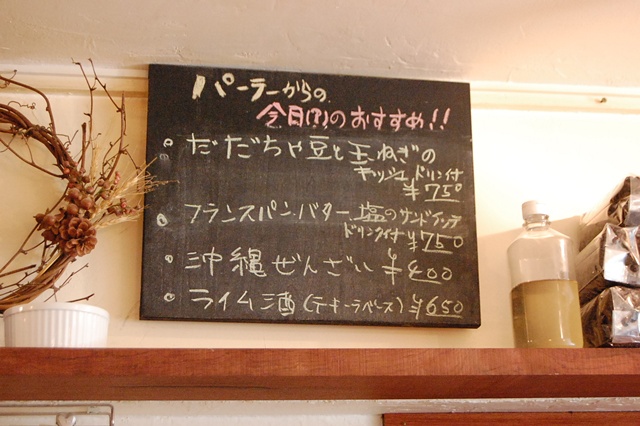 パーラーからの
今日(?)のおすすめ!!
だだちゃ豆と玉ねぎの
キッシュ ドリンク付
¥750
フランスパン・バター・塩のサンドイッチ
ドリンク付 ¥750
沖縄ぜんざい ¥400
ライム酒(テキーラベース) ¥650